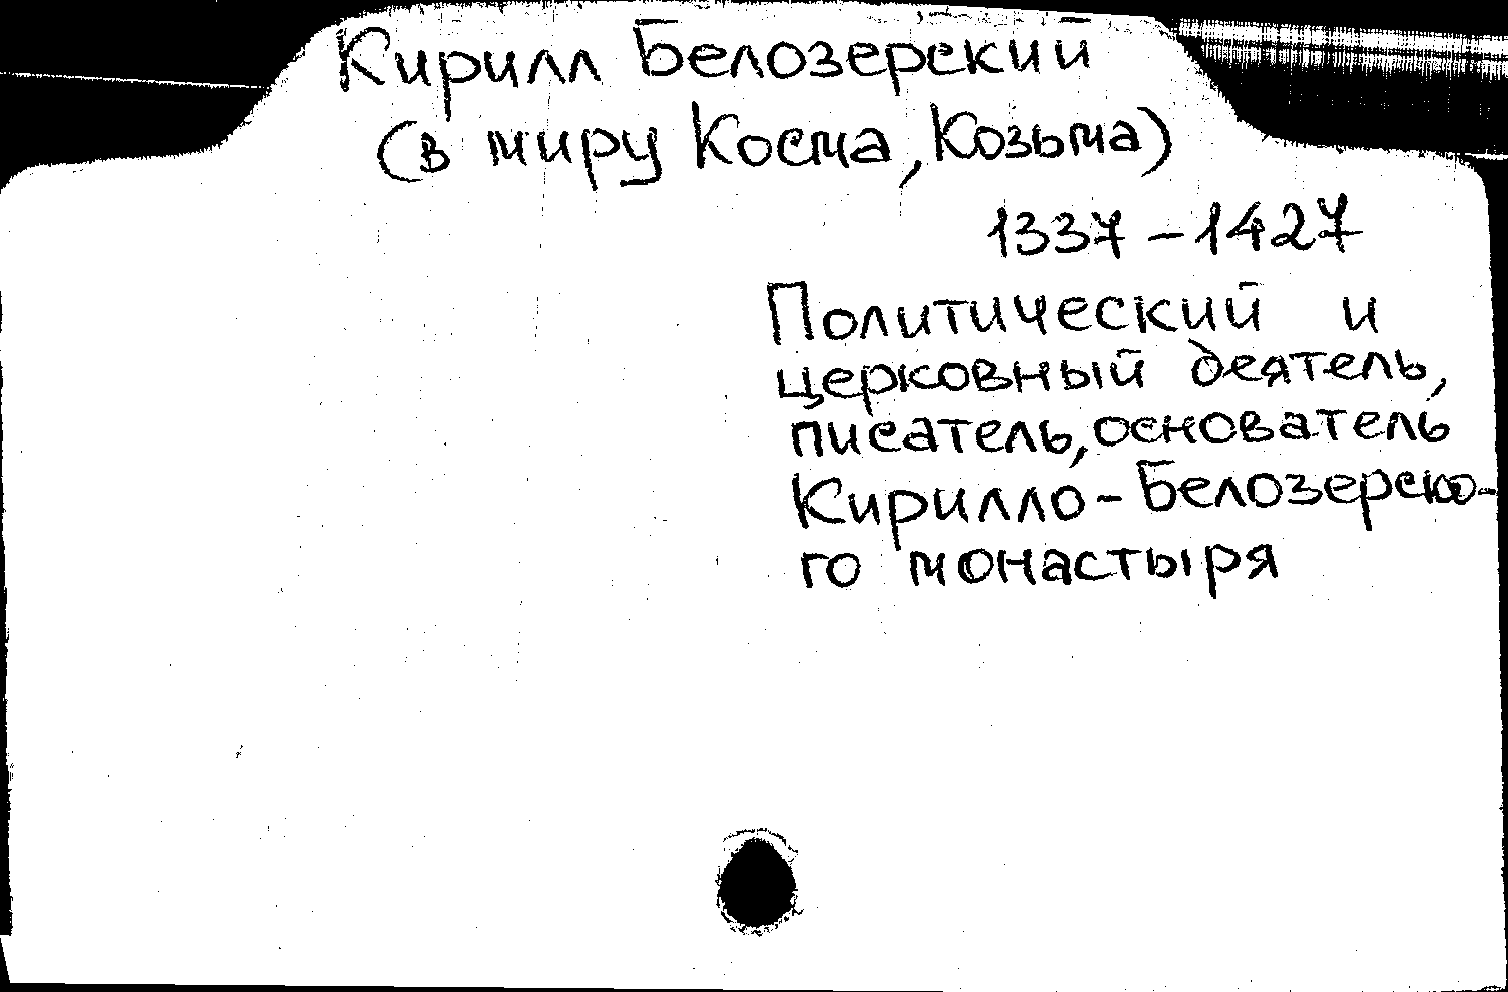 Кирилл Белозерский
(в миру Косма, Козьма)
1337 - 1427
Политический и
церковный деятель,
писатель, основатель
Кирилло-Белозерско-
го монастыря